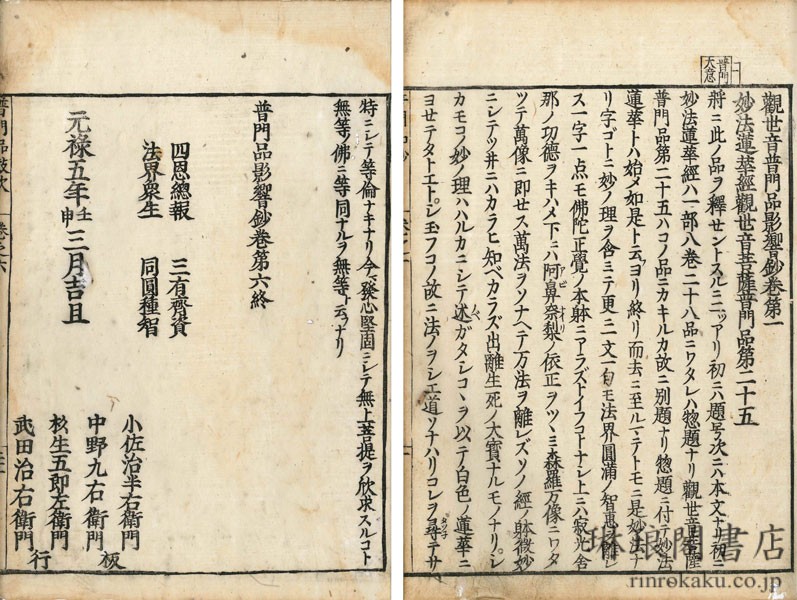 普門
大意
觀世音普門品影響鈔卷第一
妙法蓮華經觀世音菩薩普門品第二十五
將ニ此ノ品ヲ釋セントスルニ二ツアリ初ニハ題号次ニハ本文ナリ初ニ
妙法蓮華經ハ一部八卷二十八品ニワタレハ惣題ナリ觀世音菩薩
普門品第二十五ハコノ品ニカキルカ故ニ別題ナリ惣題ニ付テ妙法
蓮華トハ始メ如是ト云ヨリ終リ而去ニ至ルマテトモニ是妙法ナ
リ字ゴトニ妙ノ理ヲ含ミテ更ニ一文一句モ法界圓滿ノ智惠ヲ離レ
ス一字一点モ佛陀正覺ノ本躰ニアラズトイフコトナシ上ニハ寂光舍
那ノ功德ヲキハメ下ニハ阿鼻奈梨ノ依正ヲツヽミ森羅万像ニワタ
ツテ萬像ニ即セス萬法ヲソナヘテ万法ヲ離レズソノ經ノ躰微妙
ニシテツ井ニハカラヒ知ベカラズ出離生死ノ大寶ナルモノナリシ
カモコノ妙ノ理ハハルカニシテ述ガタシコヽヲ以テノ白色ノ蓮華ニ
ヨセテタトエトシ玉フコノ故ニ法ノヲシエ道ソナハリコレヲ尋テサ
特ニシテ等倫ナキナリ今發心堅固ニシテ無上菩提ヲ欣求スルコト
無等ノ佛ニ等同ナルヲ無等々云ナリ
普門品影響鈔卷第六終
四恩總報 三有齊資
法界衆生 同圓種智
元禄五年壬申三月吉旦
小佐治半右衛門
中野九右衛門 板
杉生五郎左衛門
武田治右衛門 行
琳琅閣書店
rinrokaku.co.jp